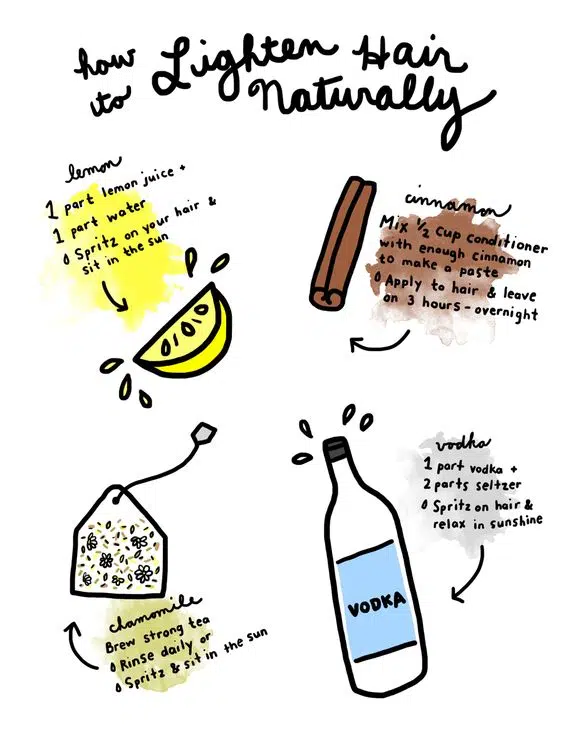 how to Lighten Hair
Naturally
lemon
1 part lemon juice +
1 part water
◊ Spritz on your hair &
sit in the sun
cinnamon
Mix 1/2 Cup conditioner
with enough cinnamon
to make a paste
◊ Apply to hair & leave
on 3 hours - overnight
vodka
1 part vodka +
2 parts seltzer
◊ Spritz on hair &
relax in sunshine
VODKA
chamomile
Brew strong tea
◊ Rinse daily or
◊ Spritz & sit in the sun